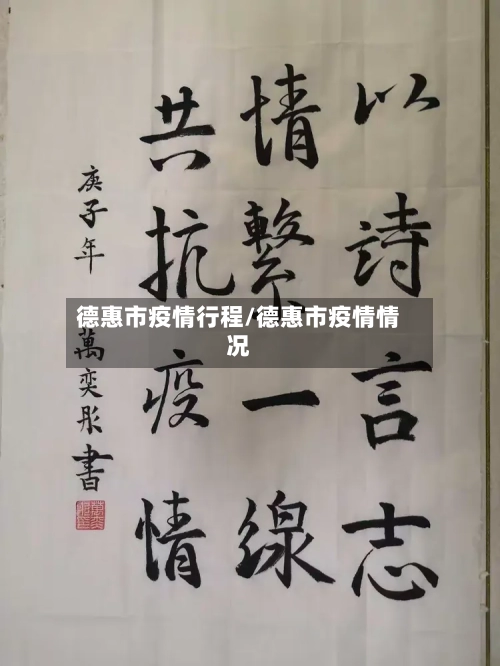 以詩言志
情繫一線
共抗疫情
庚子年 萬奕彤書
德惠市疫情行程/德惠市疫情情
况